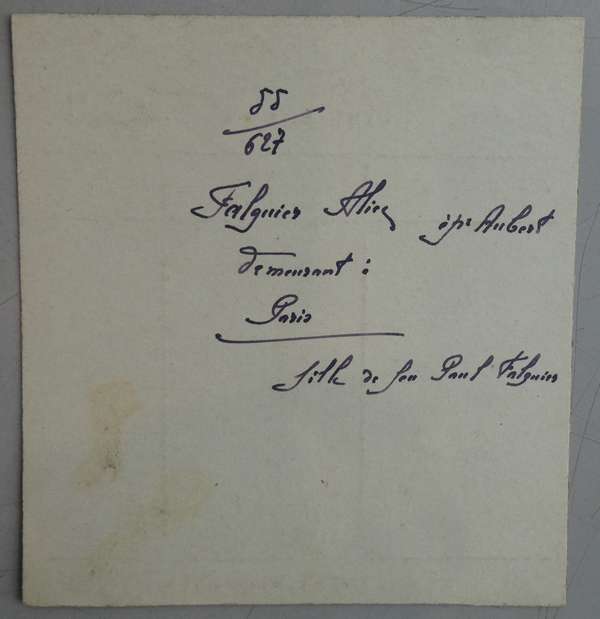 55
627
Falguier Alice ép: Aubert
demeurant à
Paris
fille de feu Paul Falguier